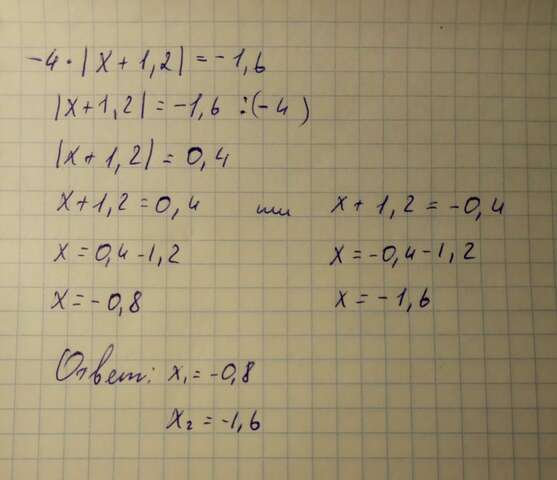 -4 · |x + 1,2| = -1,6
|x+1,2| = -1,6 : (-4)
|x + 1,2| = 0,4
x+1,2 = 0,4 или x + 1,2 = -0,4
x = 0,4 -1,2 x = -0,4 -1,2
x = -0,8 x = -1,6
Ответ: x₁ = -0,8
x₂ = -1,6